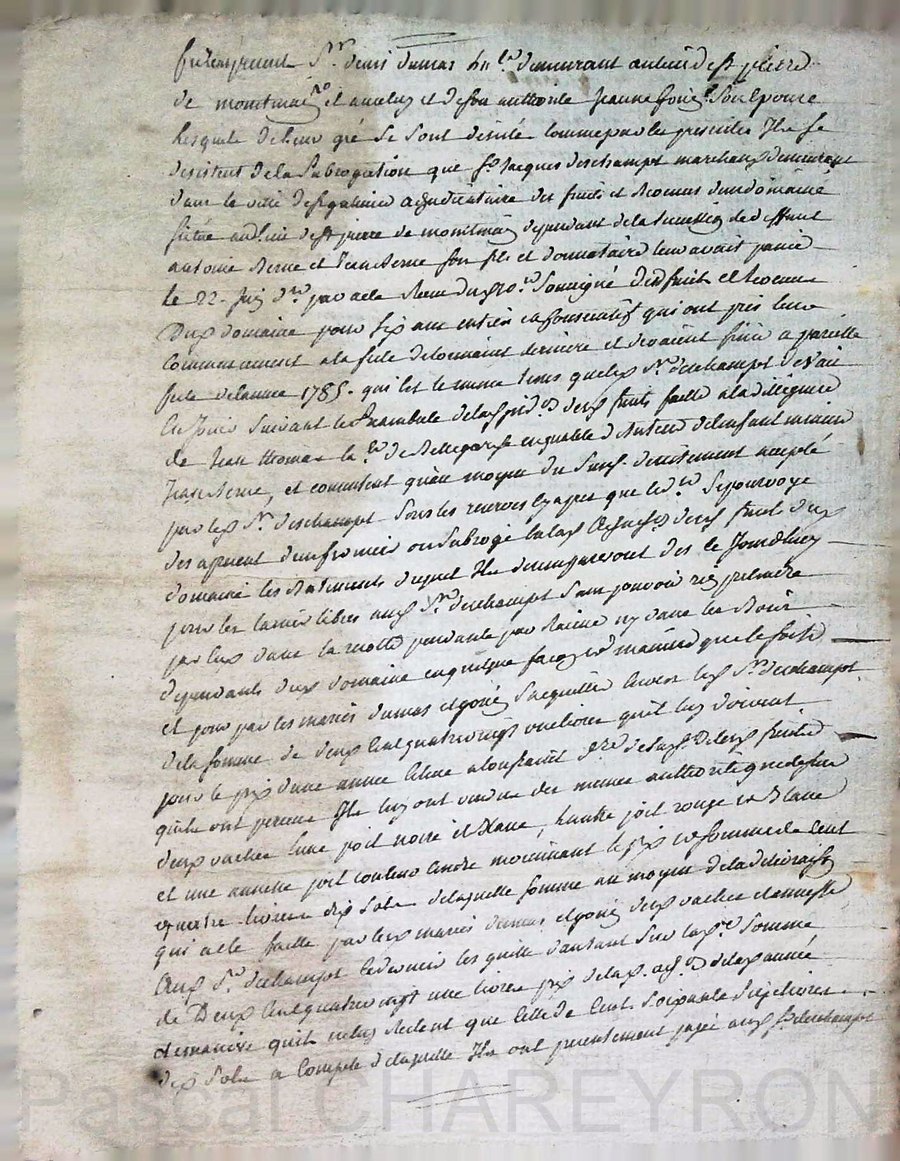 furent présent Sr. denis dumas hab. demeurant au lieu de St pierre
de monitmai et avec luy et de son authorité Jeanne Goiri Son épouse
Lesquels de leur gré se sont désisté comme par les présentes Ils se
desistent de la Subrogation que Sr. Jacques deschampst marchand demeurant
dans la ville de St galmier adjudicataire des fruits et Revenus d'un domaine
Situé au lieu de St pierre de monitmai dépendant de la succession de deffunt
antoine Berne et Jean Berne son fils et donnataire leur avait passé
le 22. par acte Reçu du No.re Soussigné des fruits et Revenus
dud. domaine pour six ans entiers et consecutifs qui ont pris leur
commencement a la fete de toussaint derniere et devaient finir a pareille
fete de l'année 1785. qui est le meme tems que led. Sr. deschampst devait
en Jouir Suivant le préambule de lad. adj.on desd. fruits faitte a la dilligence
de Jean thomas la de Bellegarde en qualité de tuteur de l'enfant mineur
Jean Berne, et consentent qu'au moyen du Susd. desistement accepté
par led. Sr. deschampst Sous les reserves que led. Sr. Se pourvoye
des a present d'un fermier ou Subrogé a lad. desd. fruits dud.
domaine les Batiments duquel Ils demenageront des le Jourd'huy
pour les laisser libres aud. Sr. deschampst Sans pouvoir rien prétendre
par eux dans la recolte pendante par Racine ny dans les Bois
dependants dud. domaine en quelque façon et maniere que le soit
et pour par les mariés dumas et goiri S'acquitter envers led. Sr. deschampst
de la somme de deux Cent quatre vingt une livre qu'ils luy doivent
pour le prix d'une année échue a la toussaint d.re de lad. desd. fruits
qu'ils ont perçus Ils luy ont vendu des memes authorités que dessus
deux vaches l'une poil noire et blanc, l'autre poil rouge et Blanc
et une annelle poil couleur Cendre moyennant le prix et somme de Cent
quatre livres dix Sols de laquelle somme au moyen de la délivraison
qui a été faitte par lesd. mariés dumas et goiri desd. vaches et annelle
aud. Sr. deschampst ce dernier les quitte d'autant Sur lad. Somme
de Deux Cent quatre vingt une livre prix de lad. adj.on de lad. année
de maniere qu'ils ne luy Restent que celle de Cent Soixante Seize livres
dix Sols a Compte de laquelle Ils ont presentement payé aud. Sr. deschampst
Pascal CHAREYRON